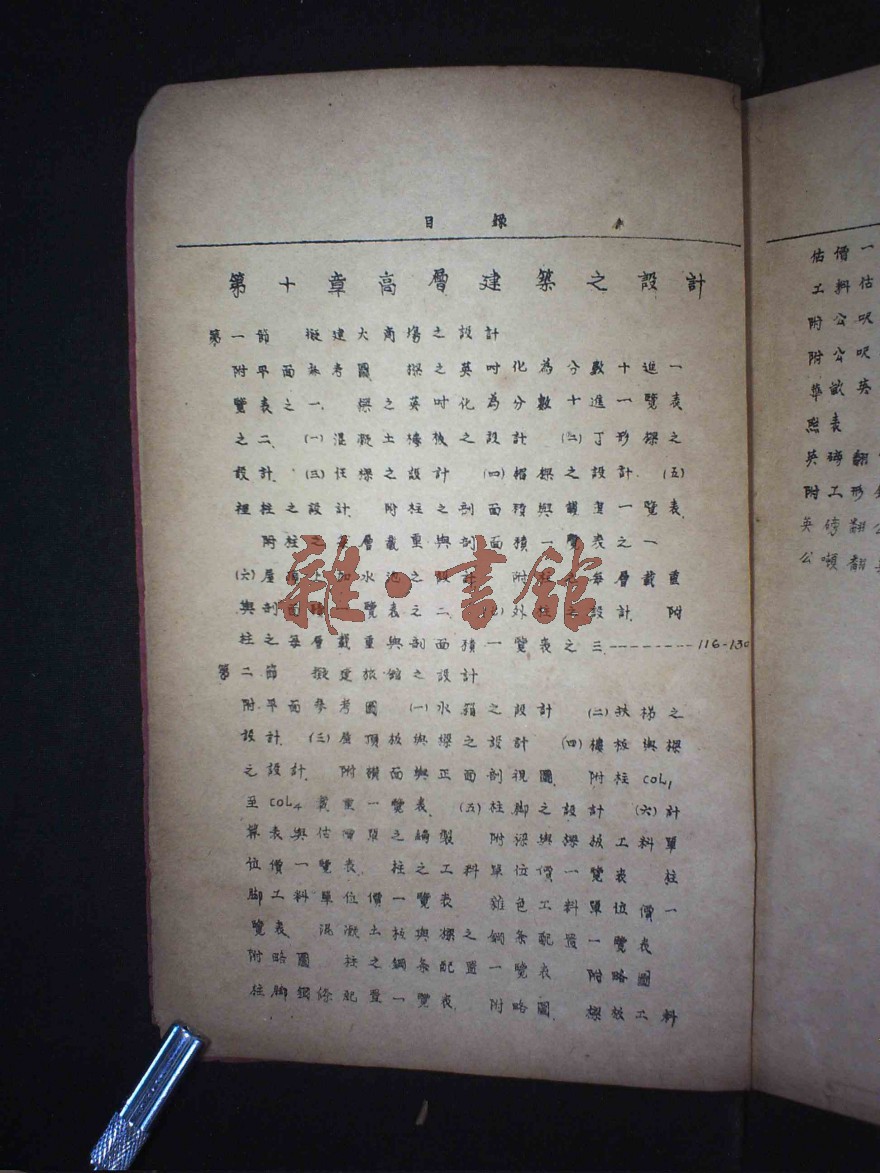 目錄
第十章高層建築之設計
第一節 擬建大商場之設計
附平面參考圖 樑之英吋化為分數十進一
覽表之一. 樑之英吋化為分數十進一覽表
之二. (一)混凝土樓板之設計 (二)丁形樑之
設計. (三)任樑之設計 (四)楣樑之設計. (五)
裡柱之設計. 附柱之剖面積與載重一覽表.
附柱之每層載重與剖面積一覽表之一
(六)屋頂上加水池之設計 附柱之每層載重
與剖面積一覽表之二. (七)外柱之設計. 附
柱之每層載重與剖面積一覽表之三.--------116-130
第二節 擬建旅館之設計.
附平面參考圖 (一)水箱之設計 (二)扶梯之
設計. (三)屋頂板與樑之設計 (四)樓板與樑
之設計. 附橫面與正面剖視圖. 附柱COL1
至COL4載重一覽表. (五)柱腳之設計 (六)計
算表與估價單之編製 附樑與樑板工料單
位價一覽表. 柱之工料單位價一覽表 柱
腳工料單位價一覽表 雜色工料單位價一
覽表. 混凝土板與樑之鋼條配置一覽表
附略圖 柱之鋼條配置一覽表 附略圖
柱腳鋼條配置一覽表. 附略圖. 樑板工料
雜·書館
估價一
工料估
附公呎
附公呎
華畝英
照表
英磅翻
附工形
英磅翻公
公噸翻